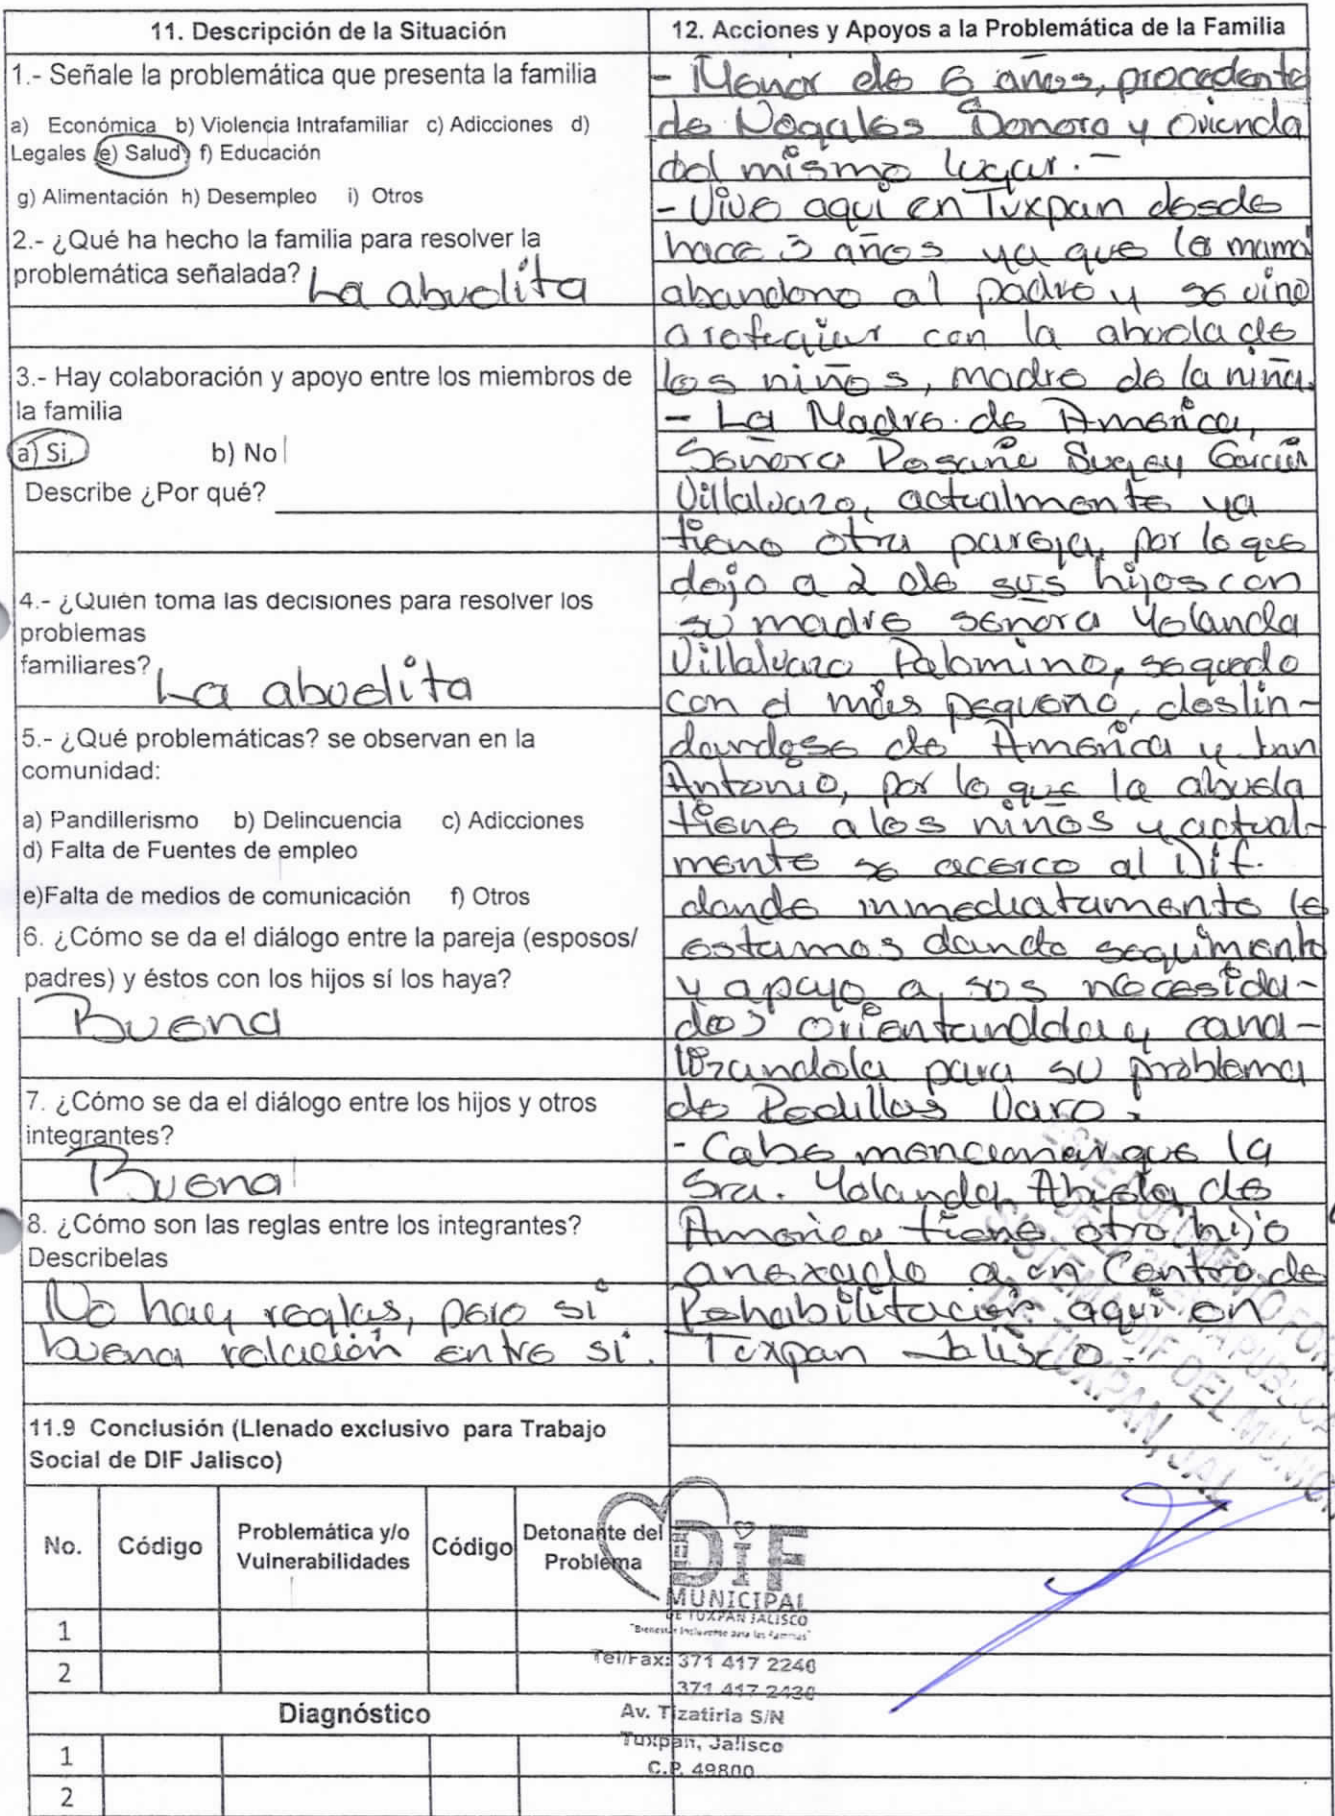 11. Descripción de la Situación
1.- Señale la problemática que presenta la familia
a) Económica b) Violencia Intrafamiliar c) Adicciones d)
Legales e) Salud f) Educación
g) Alimentación h) Desempleo i) Otros
2.- ¿Qué ha hecho la familia para resolver la
problemática señalada? La abuelita
3.- Hay colaboración y apoyo entre los miembros de
la familia
a) Si, b) No
Describe ¿Por qué?
4.- ¿Quién toma las decisiones para resolver los
problemas
familiares? La abuelita
5.- ¿Qué problemáticas? se observan en la
comunidad:
a) Pandillerismo b) Delincuencia c) Adicciones
d) Falta de Fuentes de empleo
e)Falta de medios de comunicación f) Otros
6. ¿Cómo se da el diálogo entre la pareja (esposos/
padres) y éstos con los hijos sí los haya?
Buena
7. ¿Cómo se da el diálogo entre los hijos y otros
integrantes?
Buena
8. ¿Cómo son las reglas entre los integrantes?
Describelas
No hay reglas, pero si
buena relación entre si.
12. Acciones y Apoyos a la Problemática de la Familia
- Menor de 6 años, procedente
de Nogales Sonora y oriunda
del mismo lugar.-
- Vive aqui en Tuxpan desde
hace 3 años ya que la mamá
abandono al padre y se vino
a refugiar con la abuela de
los niños, madre de la niña.
- La Madre de America,
Señora Sugey García
Villalvazo, actualmente ya
tiene otra pareja, por lo que
dejo a 2 de sus hijos con
su madre señora Yolanda
Villalvazo Palomino, se quedo
con el más pequeño, deslin-
dandose de America y Ian
Antonio, por lo que la abuela
tiene a los niños y actual-
mente se acerco al Dif.
donde inmediatamente le
estamos dando seguimiento
y apoyo a sus necesida-
des orientandola y cana-
lizandola para su problema
de Rodillas Varo.
- Cabe mencionar que la
Sra. Yolanda, Abuela de
America tiene otro hijo
anexado a un Centro de
Rehabilitación aqui en
Tuxpan Jalisco.
11.9 Conclusión (Llenado exclusivo para Trabajo
Social de DIF Jalisco)
No. Código Problemática y/o Vulnerabilidades Código Detonante del Problema
1
2
Diagnóstico
1
2
DIF
MUNICIPAL
DE TUXPAN JALISCO
Tel/Fax: 371 417 2240
371 417 2430
Av. Tizatiria S/N
Tuxpan, Jalisco
C.P. 49800
ESTE DOCUMENTO FORMA
SISTEMA DIF DEL MUNICI
DE TUXPAN, JAL